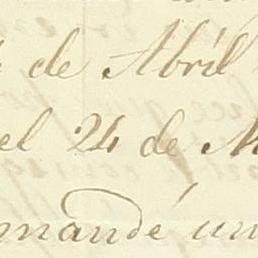 de Abril
el 24 de M
mandé un